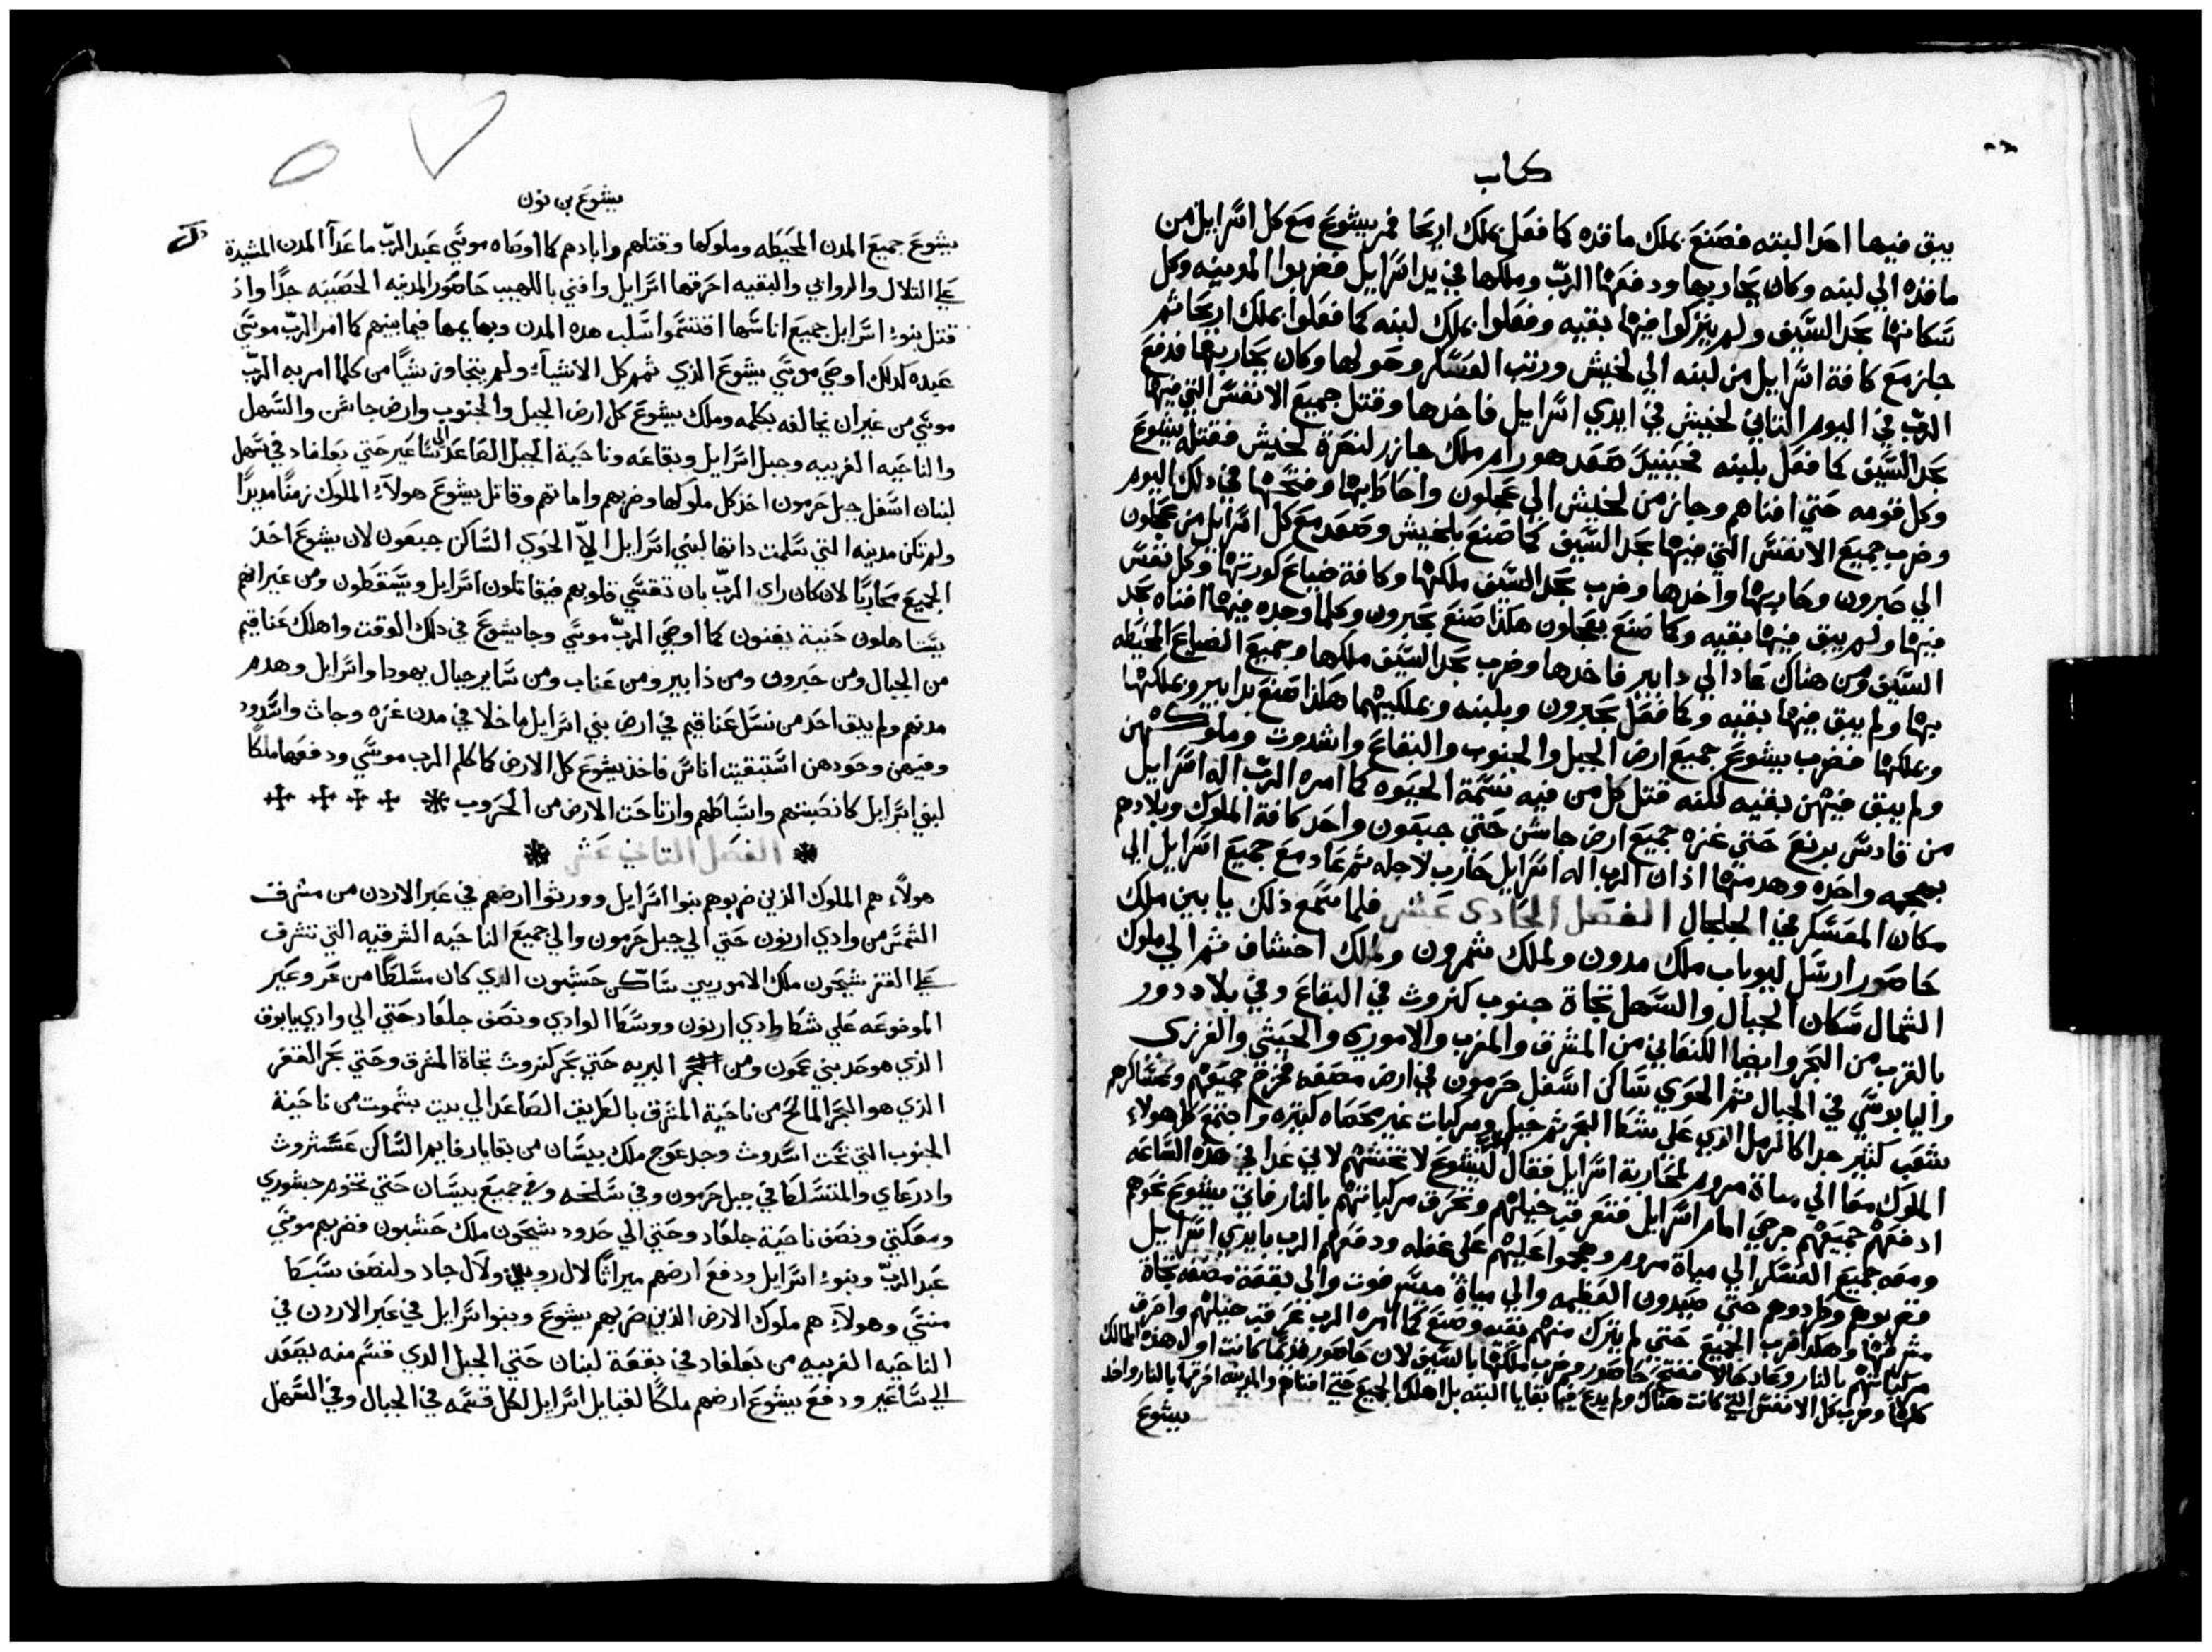 كتاب
يبق فيها احد البته فصنع بملك ماقده كما فعل بملك اريحا فمر يشوع مع كل اسرايل من
ماقده الي لبنه وكان يحاربها ودفعها الرب وملكها في يد اسرايل فضربوا المدينه وكل
سكانها بحد السيف ولم يتركوا فيها بقيه وفعلوا بملك لبنه كما فعلوا بملك اريحا ثم
جاز مع كافة اسرايل من لبنه الي لخيش ورتب العسكر وحولها وكان يحاربها فدفع
الرب في اليوم الثاني لخيش في ايدي اسرايل فاخدها وقتل جميع الانفس التي فيها
بحد السيف كما فعل بلبنه فحينيذ صعد هورام ملك جازر لنصرة لخيش فقتله يشوع
وكل قومه حتي افناهم وجاز من لخيش الي عجلون واحاط بها وفتحها في دلك اليوم
وضرب جميع الانفس التي فيها بحد السيف كما صنع بلخيش وصعد مع كل اسرايل من عجلون
الي حبرون وحاربها واخدها وضرب بحد السيف ملكها وكافة ضياع كورتها وكل نفس
فيها ولم يبق فيها بقيه وكما صنع بعجلون هكذا صنع بحبرون وكلما وجده فيها افناه بحد
السيف ومن هناك عاد الي دابير فاخدها وضرب بحد السيف ملكها وجميع الضياع المحيطه
بها ولم يبق فيها بقيه وكما فعل بحبرون وبلبنه وبملكيهما هكذا صنع بدابير وبملكها
وبملكها فضرب يشوع جميع ارض الجبل والجنوب والبقاع واشدوت وملوكهن
ولم يبق فيهن بقيه لكنه قتل كل من فيه نسمة الحيوه كما امره الرب اله اسرايل
من قادس برنع حتي غزه جميع ارض جاشن حتي جبعون واخد كافة الملوك وبلادهم
بهجمه واحده وهدمها اذ ان الرب اله اسرايل حارب لاجله ثم عاد مع جميع اسرايل الي
مكان المعسكر في الجلجال الفصل الحادي عشر فلما سمع ذلك يابين ملك
حاصور ارسل ليوباب ملك مدون ولملك شمرون ولملك اخشاف ثم الي ملوك
الشمال سكان الجبال والسهل تجاة جنوب كنروث في البقاع وفي بلاد دور
بالقرب من البحر وايضا الكنعاني من المشرق والمغرب والاموري والحيثي والفرزي
واليابوسي في الجبال ثم الحوي ساكن اسفل حرمون في ارض مصفه فخرج جميعهم وعساكرهم
شعب كثير جدا كالرمل الذي علي شط البحر ثم خيل ومركبات غير محصاه كثيره واجتمع كل هولاء
الملوك معا الي مياة مروم لمحاربة اسرايل فقال الرب ليشوع لا تخشهم لاني غدا في هذه الساعه
ادفعهم جميعهم جرحي امام اسرايل فتعرقب خيلهم وتحرق مركباتهم بالنار فاتي يشوع نحوهم
ومعه جميع العسكر الي مياة مروم وهجموا عليهم علي غفله ودفعهم الرب بايدي اسرايل
فضربوهم وطردوهم حتي صيدون العظيمه والي مياة مسرفوت والي بقعة مصفه تجاة
مشرقها وهكذا ضرب الجميع حتي لم يترك منهم بقيه وصنع كما امره الرب عرقب خيلهم واحرق
مركباتهم بالنار وعاد حالا ففتح حاصور وضرب ملكها بالسيف لان حاصور قديما كانت اول هذه الممالك
كلها وضرب كل الانفس التي كانت هناك ولم يدع فيها بقايا البته بل اهلك الجميع حتي افناهم والمدينه احرقها بالنار واخد
يشوع
يشوع بن نون
يشوع جميع المدن المحيطه وملوكها وقتلهم وابادهم كما اوصاه موسي عبد الرب ما عدا المدن المشيدة
علي التلال والروابي والبقيه احرقها اسرايل وافني باللهيب حاصور المدينه الحصينه جدا واذ
قتل بنوا اسرايل جميع اناسها اقتسموا سلب هده المدن وبهايمها فيما بينهم كما امر الرب موسي
عبده كدلك اوصي موسي يشوع الذي تمم كل الاشياء ولم يتجاوز شيا من كلما امر به الرب
موسي من غير ان يخالفه بكلمه وملك يشوع كل ارض الجبل والجنوب وارض جاشن والسهل
والناحيه الغربيه وجبل اسرايل وبقاعه وناحية الجبل الصاعد الي ساعير حتي بعلغاد في سهل
لبنان اسفل جبل حرمون اخذ كل ملوكها وضربهم واماتهم وقاتل يشوع هولاء الملوك زمنا مديدا
ولم تكن مدينه التي سلمت داتها لبني اسرايل الا الحوي الساكن جبعون لان يشوع اخد
الجميع محاربا لان كان راي الرب بان تقسي قلوبهم فيقاتلون اسرايل ويسقطون ومن غير انهم
يستاهلون حنية يفنون كما اوصي الرب موسي وجا يشوع في دلك الوقت واهلك عناقيم
من الجبال ومن حبرون ومن دابير ومن عناب ومن ساير جبال يهودا واسرايل وهدم
مدنهم ولم يبق احد من نسل عناقيم في ارض بني اسرايل ما خلا في مدن غزه وجاث واسدود
وفيهن وحودهن استبقيت اناس فاخذ يشوع كل الارض كما كلم الرب موسي ودفعها ملكا
لبني اسرايل كانصبتهم واسباطهم وارتاحت الارض من الحروب
الفصل الثاني عشر
هولاء هم الملوك الذين ضربوهم بنوا اسرايل وورثوا ارضهم في عبر الاردن من مشرقت
الشمس من وادي ارنون حتي الي جبل حرمون والي جميع الناحيه الشرقيه التي تشرف
علي القفر شيحون ملك الاموريين ساكن حشبون الدي كان مسلطا من عروعير
الموضوعه علي شط وادي ارنون ووسط الوادي ونصف جلعاد حتي الي وادي يابوق
الذي هو حد بني عمون ومن البريه حتي بحر كنروث تجاة المشرق وحتي بحر القفر
الذي هو البحر المالح من ناحية المشرق بالطريق الصاعد الي بيت يشموت من ناحية
الجنوب التي تحت اسدوث وحد عوج ملك بيسان من بقايا رفايم الساكن عستروث
وادرعاي والمتسلط في جبل حرمون وفي سلخه وفي جميع بيسان حتي تخوم جشوري
ومعكتي ونصف ناحية جلعاد وحتي الي حدود شيحون ملك حشبون فضربهم موسي
عبد الرب وبنوا اسرايل ودفع ارضهم ميراثا لال روبيل ولال جاد ولنصف سبط
منسي وهولاء هم ملوك الارض الذين ضربهم يشوع وبنوا اسرايل في عبر الاردن في
الناحيه الغربيه من بعلغاد في بقعة لبنان حتي الجبل الدي قسم منه يصعد
الي ساعير ودفع يشوع ارضهم ملكا لقبايل اسرايل لكل قسمه في الجبال وفي السهل